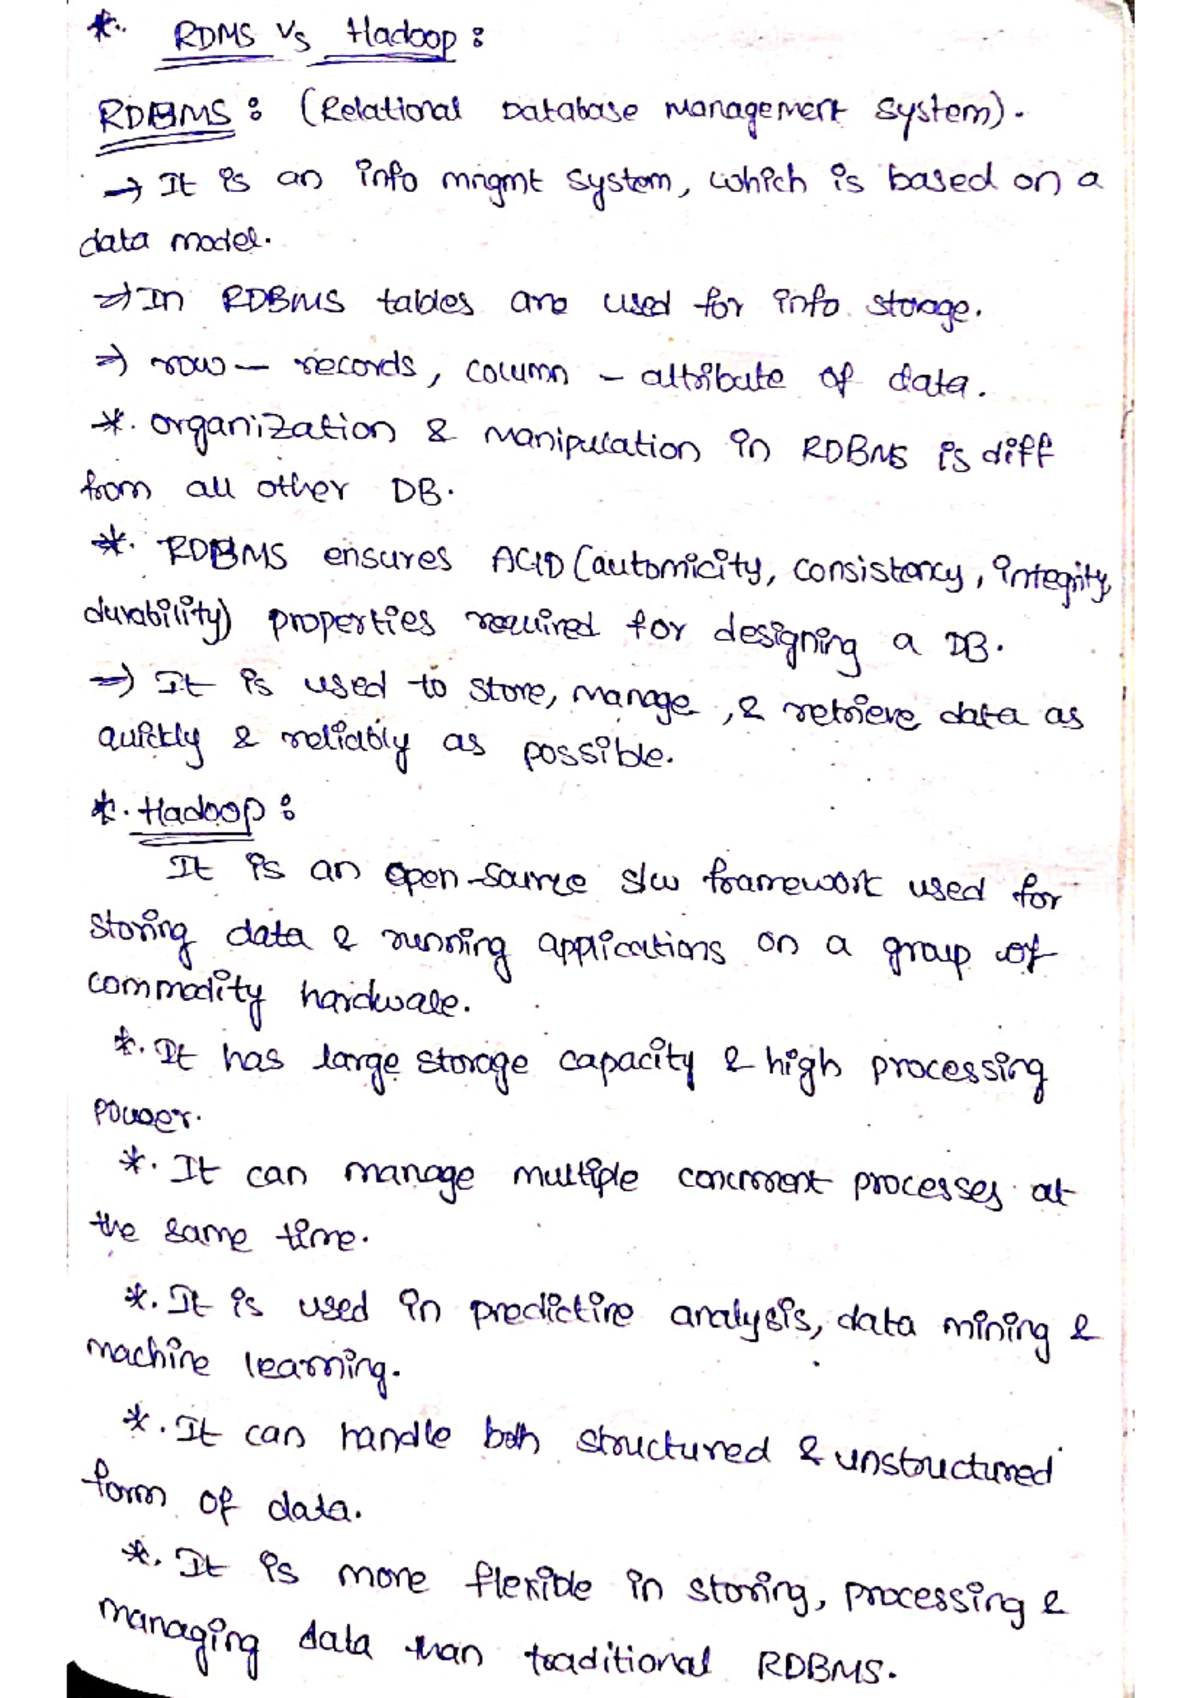 *. RDMS Vs Hadoop :
RDBMS : (Relational Database Management System).
→ It is an info mngmt system, which is based on a
data model.
⇒ In RDBMS tables are used for info storage.
⇒ row - records, column - attribute of data.
*. organization & manipulation in RDBMS is diff
from all other DB.
*. RDBMS ensures ACID (automicity, consistency, integrity,
durability) properties required for designing a DB.
⇒ It is used to store, manage, & retrieve data as
quickly & reliably as possible.
*. Hadoop :
It is an open-source s/w framework used for
storing data & running applications on a group of
commodity hardware.
*. It has large storage capacity & high processing
power.
*. It can manage multiple concurrent processes at
the same time.
*. It is used in predictive analysis, data mining &
machine learning.
*. It can handle both structured & unstructured
form of data.
*. It is more flexible in storing, processing &
managing data than traditional RDBMS.